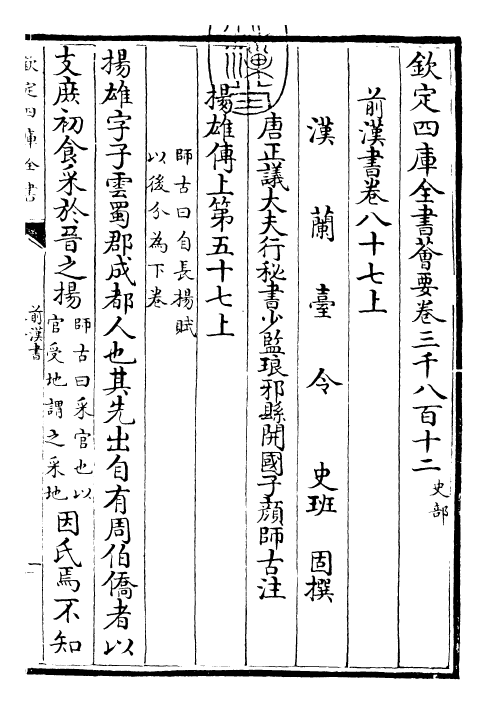 欽定四庫全書薈要卷三千八百十二 史部
前漢書卷八十七上
漢蘭臺令史班固撰
唐正議大夫行秘書少監琅邪縣開國子顏師古注
揚雄傳上第五十七上
師古曰自長揚賦
以後分為下卷
揚雄字子雲蜀郡成都人也其先出自有周伯僑者以
支庶初食采於晉之揚
師古曰采官也以
官受地謂之采地
因氏焉不知
欽定四庫全書
前漢書
一